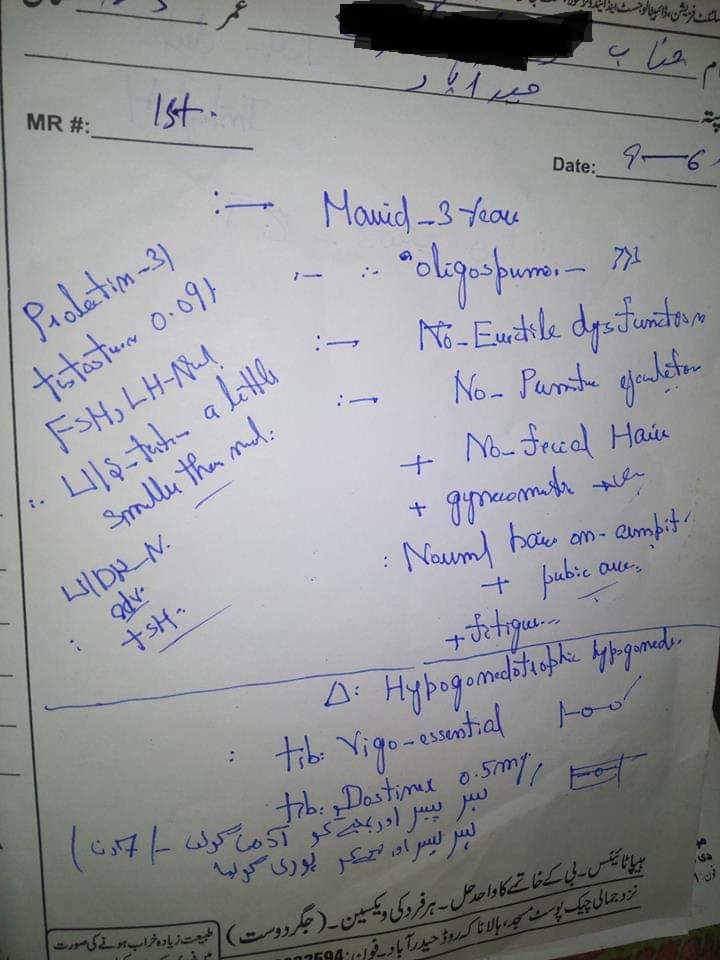 عمر
جناب
حیدرآباد
پتہ
MR #: 1st.
Date: 9-6
:→ Marrid-3 year
Prolactin-31
testosterone 0.091
FSH, LH-Nml
U/S-test- a little
smaller than nml.
U/DR-N.
adv.
TSH.
:- ∴ oligospermo.-
:→ No-Erectile dysfunction
:→ No-
+ No-facial Hair
+ gynecomast +ve
: Normal hair on-armpit
+ pubic area.
+ fatigue...
Δ: Hypogonadotrophic hypogonad.
: tib: Vigo-essential 1-0-0
tib: Dostinex 0.5mg
پیر اور کو آدھی گولی - (7 دن)
پیر اور کو پوری گولی
ہیپاٹائیٹس۔بی کے خاتمے کا واحد حل۔ہر فرد کی ویکسین۔(جگر دوست)
نزد جمالی چیک پوسٹ مسجد، بالا ناکہ روڈ حیدرآباد۔فون:
طبیعت زیادہ خراب ہونے کی صورت